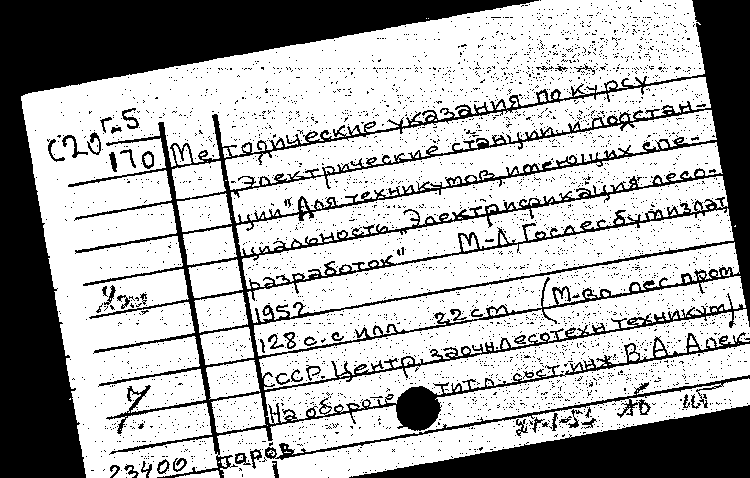 С20 Г-5
170
Методические указания по курсу
„Электрические станции и подстан-
ции" Для техникумов, имеющих спе-
циальность „Электрификация лесо-
разработок" М.-Л. Гослесбумиздат,
1952
128 с. с илл. 22 см. (М-во лес. пром
СССР. Центр. заочн. лесотехн техникум).
На обороте тит. л. сост. инж. В. А. Алек-
23400. таров.